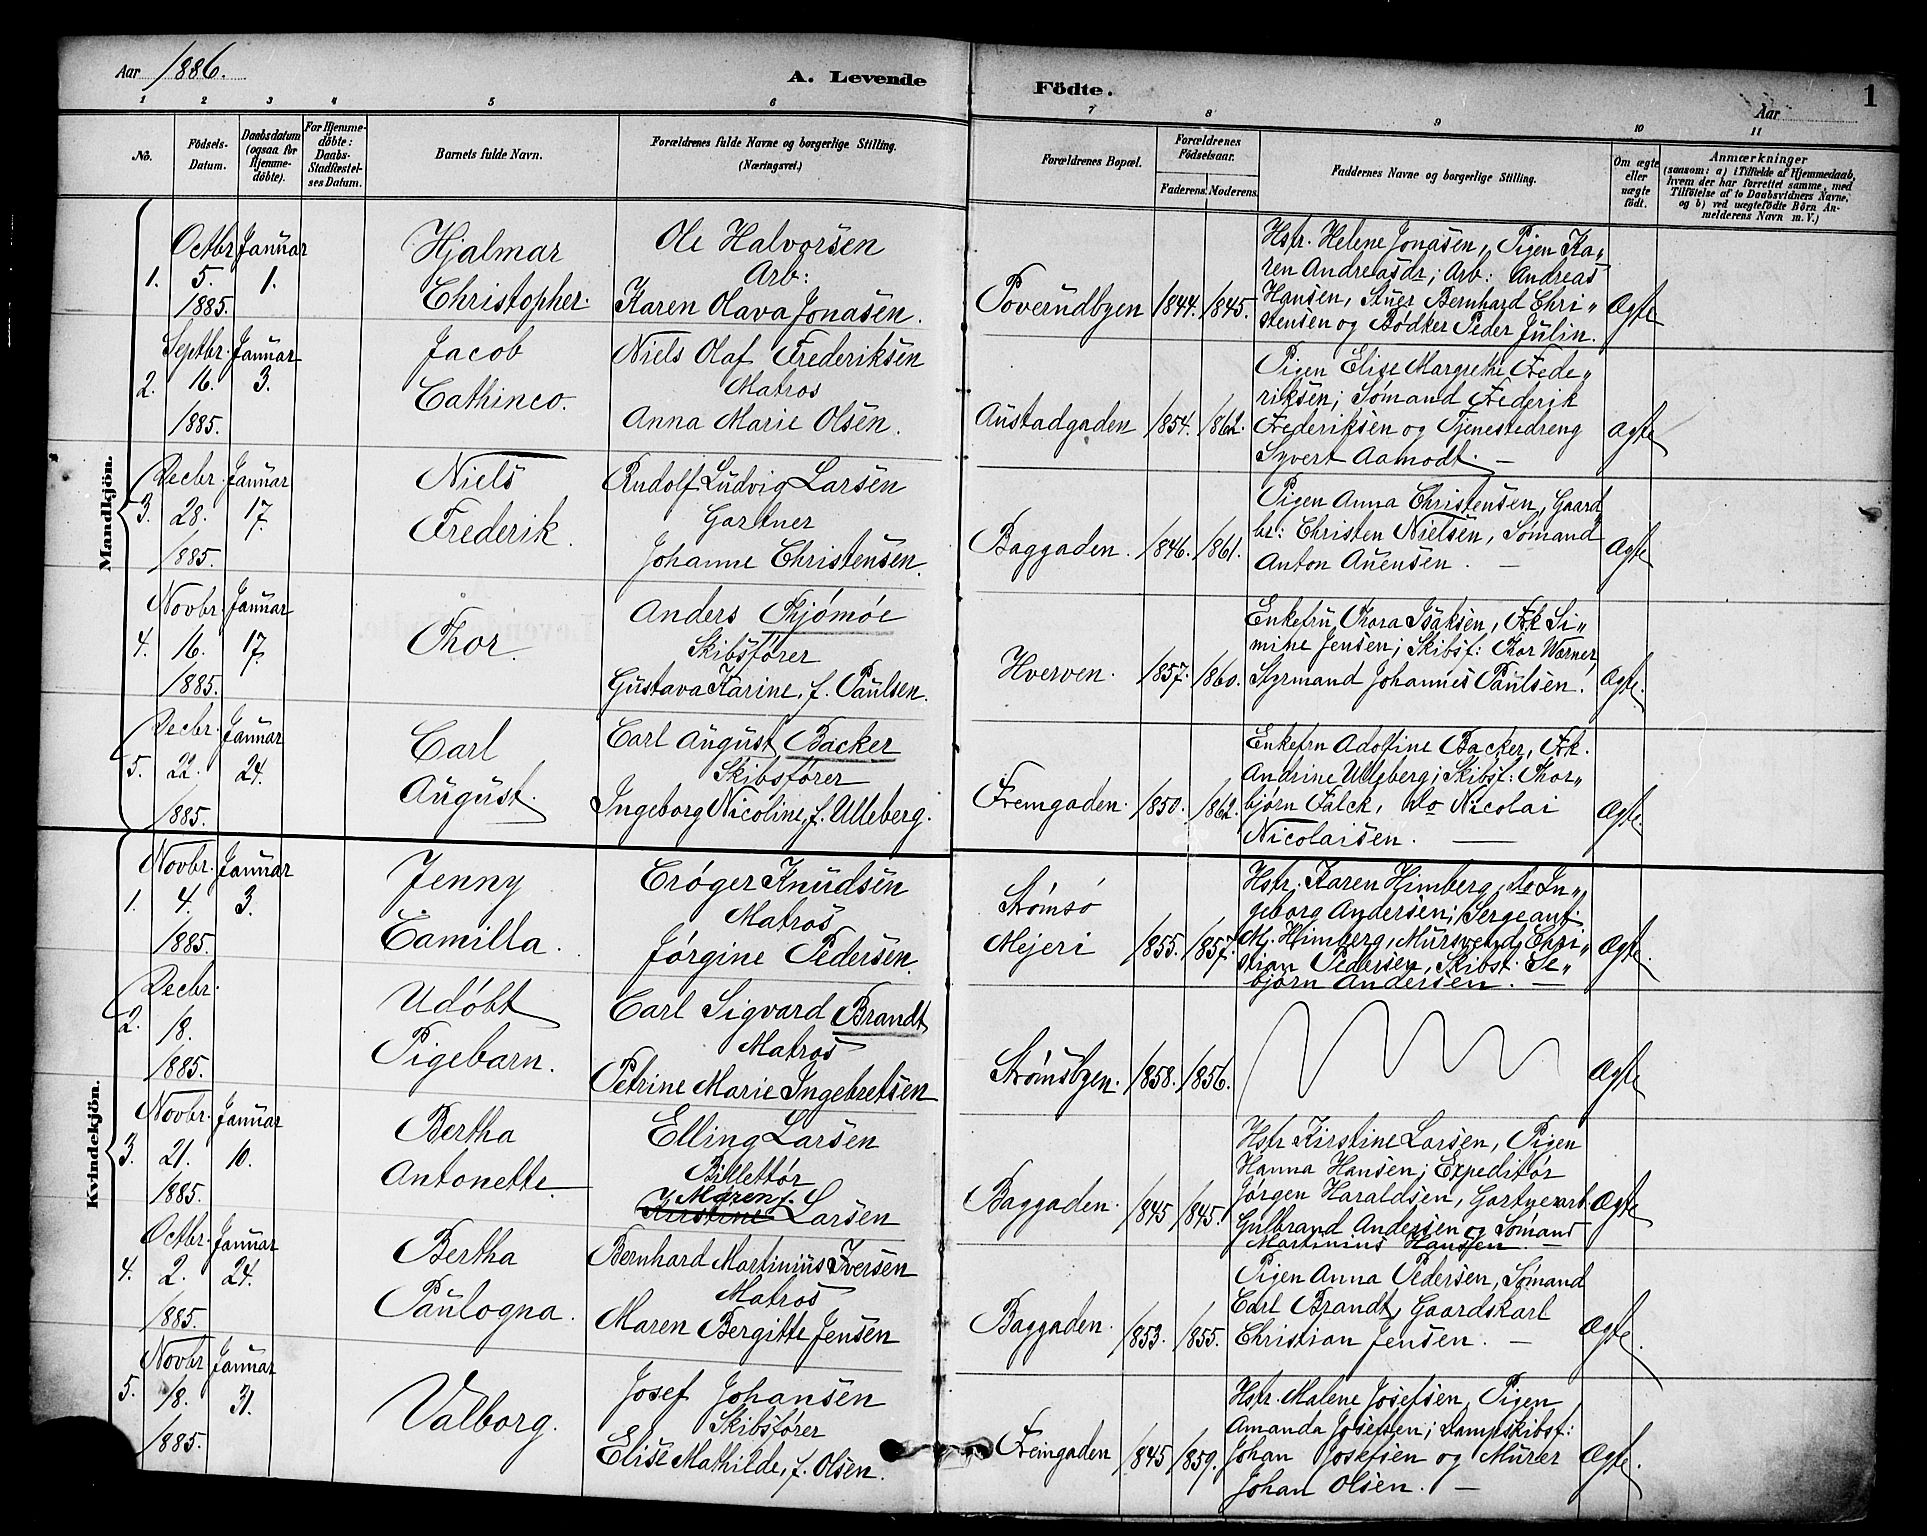 Aar 1886.
A. Levende Födte.
1
Aar
1 2 3 4 5 6 7 8 9 10 11
No.
Födsels-Datum.
Daabsdatum (ogsaa for Hjemme-döbte).
For Hjemme-döbte: Daabs-Stadfæstel-ses Datum.
Barnets fulde Navn.
Forældrenes fulde Navne og borgerlige Stilling. (Næringsvei.)
Forældrenes Bopæl.
Forældrenes Födselsaar.
Faderens. Moderens.
Faddernes Navne og borgerlige Stilling.
Om ægte eller uægte födt.
Anmærkninger
(saasom: a) i Tilfælde af Hjemmedaab, hvem der har forrettet samme, med Tilföielse af to Daabsvidners Navne, og b) ved uægtefödte Börn An-melderens Navn m. V.)
Mandkjön.
1. Octbr. 5. 1885. Januar 1.
Hjalmar
Christopher.
Ole Halvorsen
Arb:
Karen Olava Jonasen.
Toverudbyen 1844. 1845.
Hstr. Helene Jonasen, Pigen Ka-
ren Andreasdr; Arb: Andreas
Hansen, Stuer Bernhard Chri-
stensen og Bödker Peder Julin.
Ægte
2. Septbr. 16. 1885. Januar 3.
Jacob
Cathinco.
Niels Olaf Frederiksen
Matros
Anna Marie Olsen.
Austadgaden 1854. 1862.
Pigen Elise Margrethe Frede-
riksen; Sømand Frederik
Frederiksen og Tjenestedreng
Syvert Aamodt. —
Ægte
3. Decbr. 28. 1885. Januar 17.
Niels
Frederik.
Rudolf Ludvig Larsen
Gartner
Johanne Christensen.
Baggaden. 1846. 1861.
Pigen Anna Christensen, Gaard
br: Christen Nielsen, Sømand
Anton Auensen. —
Ægte
4. Novbr. 16. 1885. Januar 17.
Thor.
Anders Thjömöe
Skibsfører
Gustava Karine, f. Paulsen.
Hverven. 1857. 1860.
Enkefru Thora Isaksen, Frk Si-
mine Jensen; Skibsf: Thor Warner
Styrmand Johannes Paulsen.
Ægte.
5. Decbr. 22. 1885. Januar 24.
Carl
August.
Carl August Backer
Skibsfører
Ingeborg Nicoline, f. Ulleberg.
Fremgaden. 1850. 1862.
Enkefru Adolfine Backer, Frk.
Andrine Ulleberg; Skibsf: Thor-
bjørn Falck, do Nicolai
Nicolaisen. —
Ægte.
Kvindekjön.
1. Novbr. 4. 1885. Januar 3.
Jenny
Camilla.
Crøger Knudsen
Matros
Jørgine Pedersen.
Strømsø
Mejeri 1855. 1857.
Hstr. Karen Himberg, do In-
geborg Andersen; Sergeant
M. Himberg, Mursvend Chri-
stian Pedersen, Skibst. Se-
bjørn Andersen. —
Ægte.
2. Decbr. 18. 1885.
Udøbt
Pigebarn.
Carl Sigvard Brandt
Matros
Petrine Marie Ingebretsen
Strømsbyen. 1858. 1856.
Ægte
3. Novbr. 21. 1885. Januar 10.
Bertha
Antonette
Elling Larsen
Billettør
Maren f.
Kirstine Larsen
Baggaden. 1845 1845.
Hstr Kirstine Larsen, Pigen
Hanna Hansen; Expeditør
Jørgen Haraldsen, Gartnerarb.
Gulbrand Andersen og Sømand
Martinius Hansen. —
Ægte
4. Octbr. 2. 1885. Januar 24.
Bertha
Paulogna.
Bernhard Martinius Iversen
Matros
Maren Bergitte Jensen
Baggaden. 1853. 1855.
Pigen Anna Pedersen, Sømand
Carl Brandt, Gaardskarl
Christian Jensen. —
Ægte.
5. Novbr 18. 1885. Januar 31.
Valborg.
Josef Johansen
Skibsfører
Elise Mathilde, f. Olsen.
Fremgaden 1845 1859.
Hstr. Malene Josefsen, Pigen
Amanda Josefsen; Dampskibsf:
Johan Josefsen og Murer
Johan Olsen. —
Ægte.